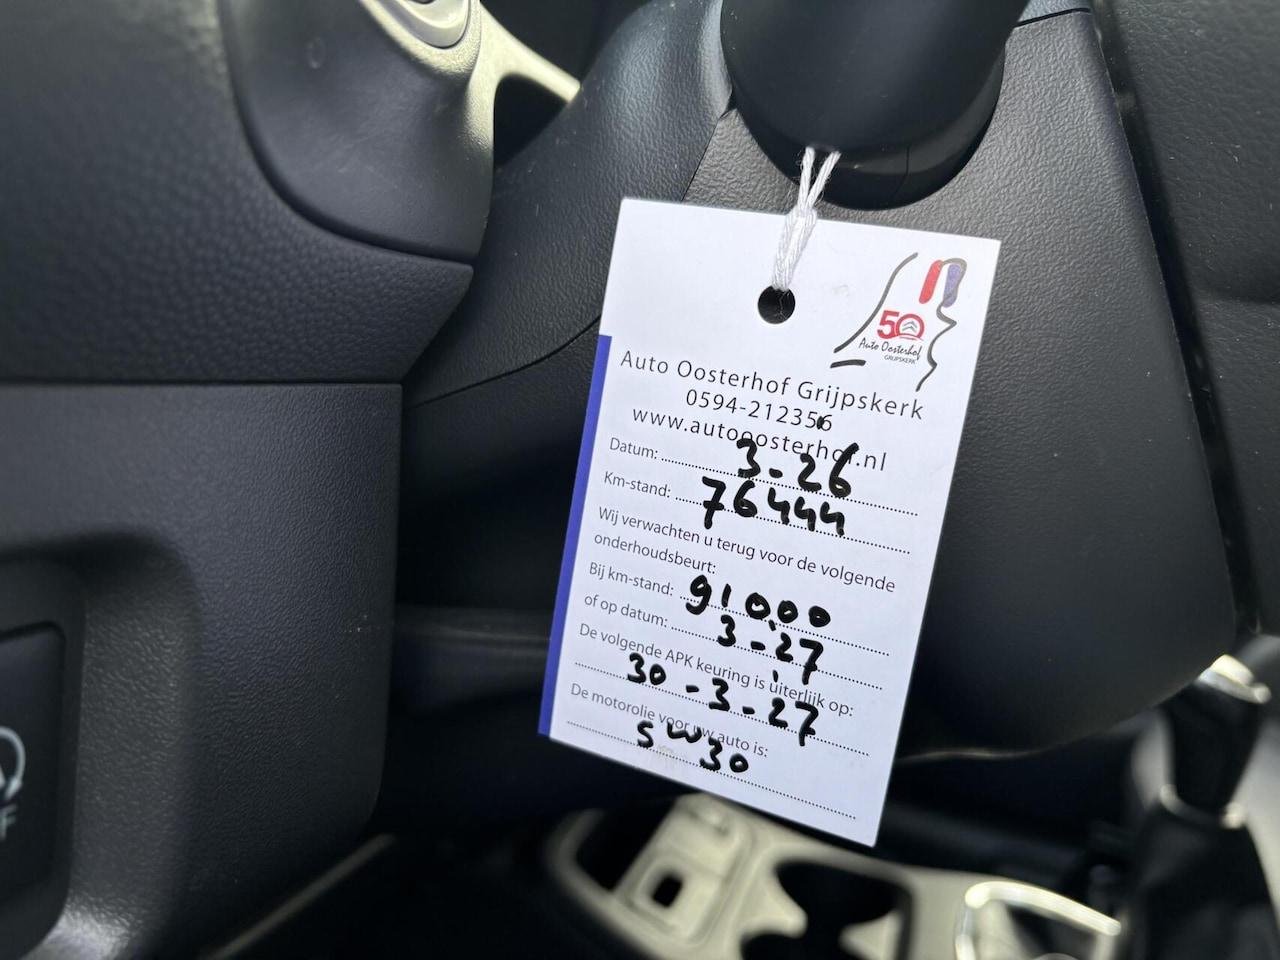 50
Auto Oosterhof
GRIJPSKERK
Auto Oosterhof Grijpskerk
0594-212356
www.autooosterhof.nl
Datum: 3-26
Km-stand: 76444
Wij verwachten u terug voor de volgende
onderhoudsbeurt:
Bij km-stand: 91000
of op datum: 3-27
De volgende APK keuring is uiterlijk op:
30-3-27
De motorolie voor uw auto is:
5W30